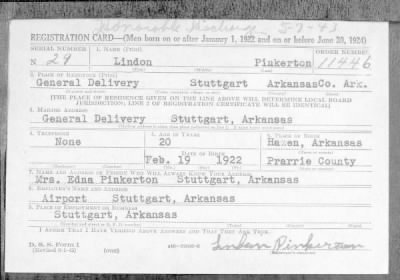 Honorable Discharge 5-7-43
REGISTRATION CARD—(Men born on or after January 1, 1922 and on or before June 30, 1924)
SERIAL NUMBER 1. NAME (Print) ORDER NUMBER
N 29 Lindon Pinkerton 11446
2. PLACE OF RESIDENCE (Print)
General Delivery Stuttgart ArkansasCo. Ark.
[THE PLACE OF RESIDENCE GIVEN ON THE LINE ABOVE WILL DETERMINE LOCAL BOARD
JURISDICTION; LINE 2 OF REGISTRATION CERTIFICATE WILL BE IDENTICAL]
3. MAILING ADDRESS
General Delivery Stuttgart, Arkansas
4. TELEPHONE 5. AGE IN YEARS 6. PLACE OF BIRTH
None 20 Hazen, Arkansas
DATE OF BIRTH
Feb. 19 1922 Prarrie County
7. NAME AND ADDRESS OF PERSON WHO WILL ALWAYS KNOW YOUR ADDRESS
Mrs. Edna Pinkerton Stuttgart, Arkansas
8. EMPLOYER'S NAME AND ADDRESS
Airport Stuttgart, Arkansas
9. PLACE OF EMPLOYMENT OR BUSINESS
Stuttgart, Arkansas
I AFFIRM THAT I HAVE VERIFIED ABOVE ANSWERS AND THAT THEY ARE TRUE.
D. S. S. Form 1 (over) Linden Pinkerton